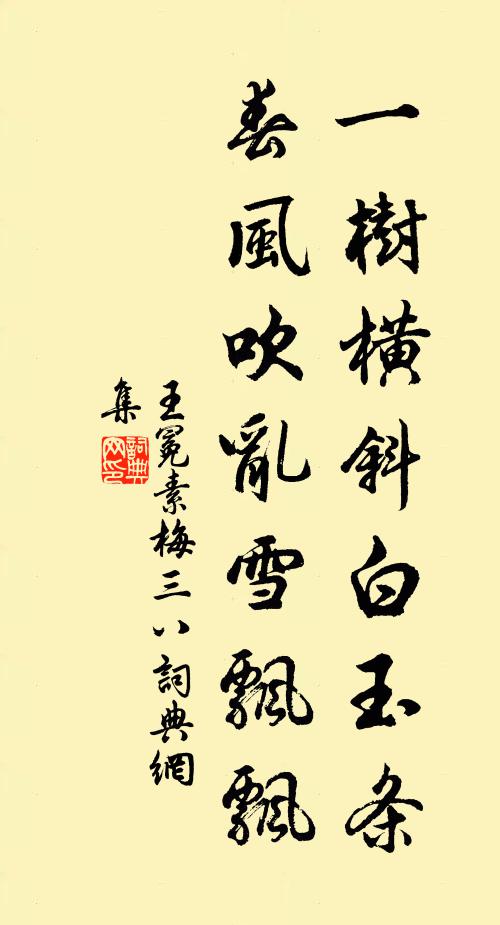 一樹橫斜白玉条
春風吹亂雪飄飄
王冕素梅三八詞典網
集
詞典
网印